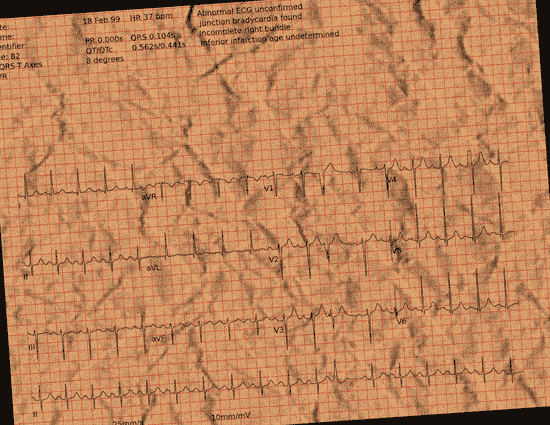 te:
me:
entifier:
e: 82
QRS-T Axes
VR
18 Feb 99 HR 37 bpm
PR 0.000s QRS 0.104s
QT/QTc 0.562s/0.441s
8 degrees
Abnormal ECG unconfirmed
Junction bradycardia found
Incomplete right bundle
Inferior infarction age undetermined
aVR V1 V4
II aVL V2
III aVF V3 V6
II
25mm/s 10mm/mV